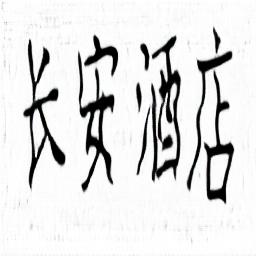 长安酒店